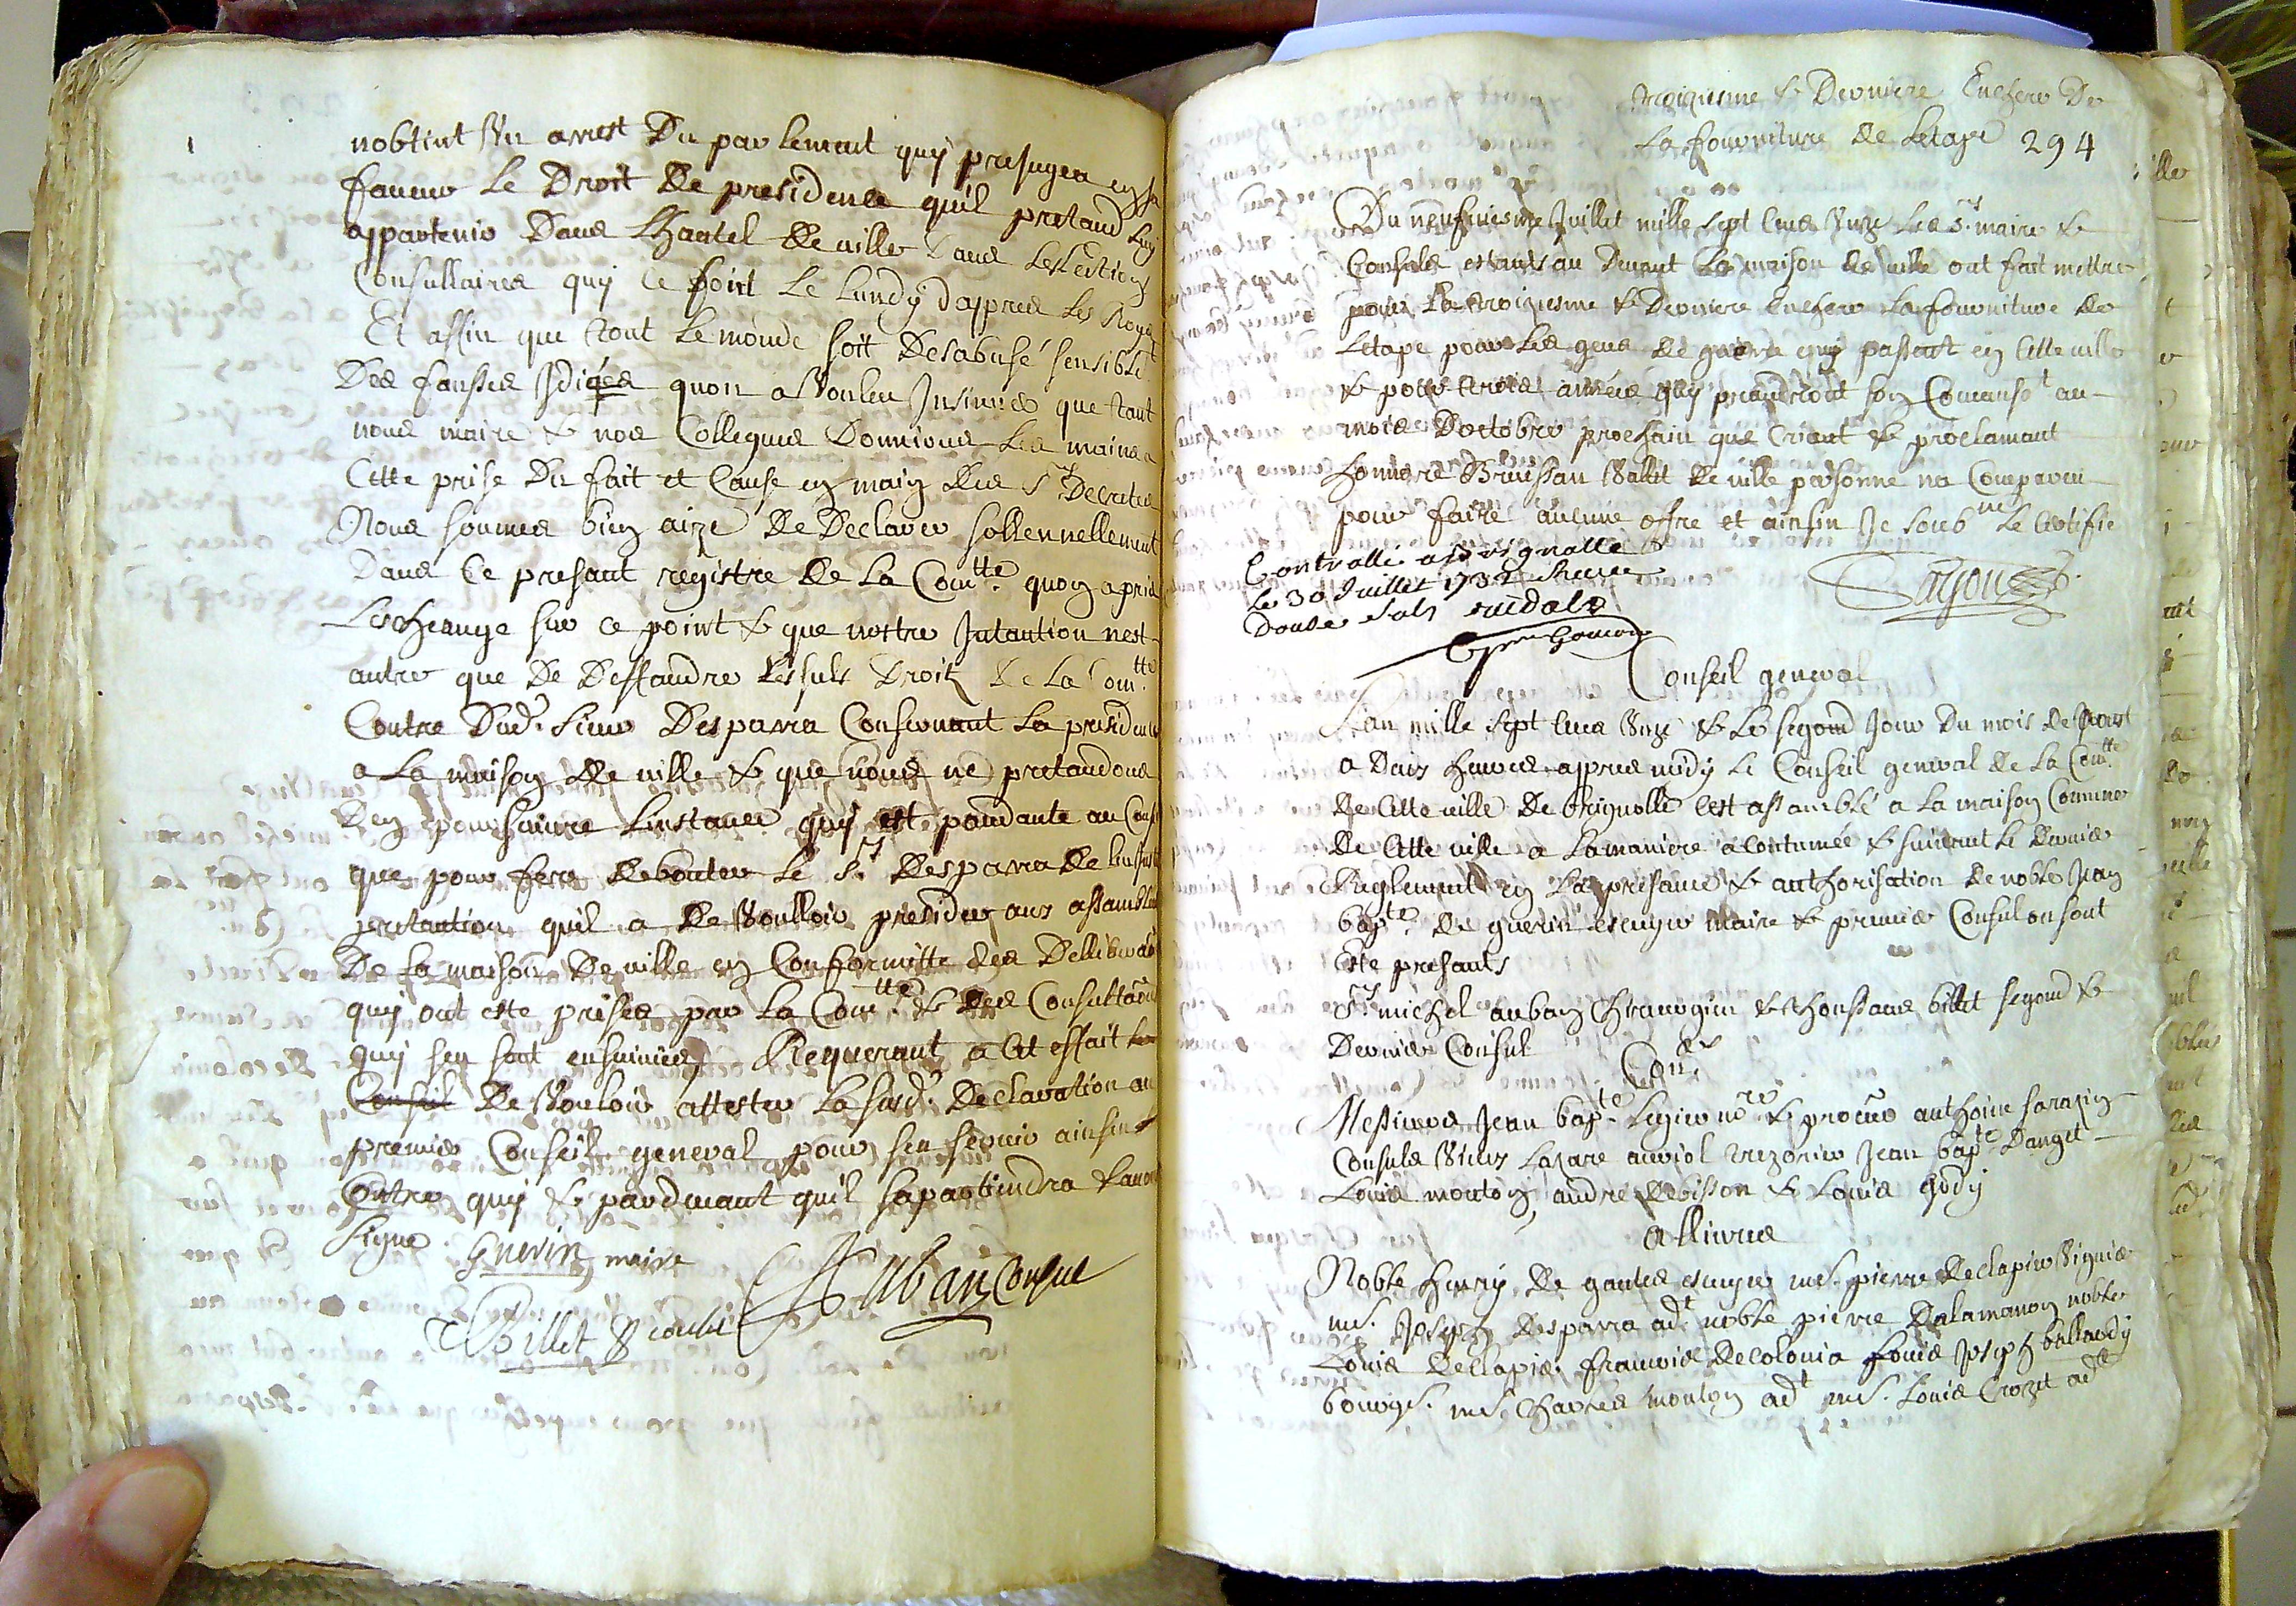 nobtint Un arrest Du parlement quy presugea en sa
faueur Le Droit De presidence quil pretand Luy
appartenir Dans Lhautel de uille Dans Les Lections
Consullaires quy ce foint Le Lundy dappres Les Roys
Et affin que tout Le monde soit Desabusé sensiblet
Des fausses Idiées quon a Voulleu Insinuer que tant
nous maire & nos Collegues Donnions Les mains a
Cette prise Du fait et Cause en main des srs Decrettes
Nous sommes bien aize De Declarer sollennellement
Dans Ce presant registre De La Comtte quon a pris
Leschange sur ce point & que nostre Intantion nest
autre que De Deffandre les suls Droitz De La Comtte
Contre Dud. sieur Desparra Consernant La presidence
a La maison de uille & que nous ne pretandons
Den poursuiure Linstance quy est pandante au Conseil
que pour fere debouter Le sr. Desparra de
pretantion quil a de Voulloir presider aux assamblees
De La maison De uille en Conformitte des Delliberaons
quy ont este prises par La Comtte & des Consultaons
quy sen sont ensuiuies Requerant a Cet effait Le
Conseil De Vouloir attester La susd. Declaration au
premier Conseil general pour sen seruir ainsin &
Contre quy & pardeuant quil sapartiendra & auons
signe Guerin maire Auban Consul
Billet Consul
troiziesme & Derniere Enchere De
La fourniture de Letape 294
Du neufuiesme Juillet mille sept Cens Unze Les srs. maire &
Consuls estants au Deuant La maison de uille ont fait mettre
pour La troiziesme & Derniere enchere La fourniture de
Letape pour Les gens de guerre quy passent en Cette uille
& pour trois années quy prandront son Comanst au
mois Doctobre prochain que Criant & proclamant
honnoré Brussan Vallet de uille personne na Compareu
pour faire aucune offre et ainsin Je soubne Le Certifie
Controllé a Brignolle
Le 30 Juillet 1711
Douse sols
Conseil general
Lan mille sept Cens Unze & Le segond Jour Du mois de
a Deux heures appres midy Le Conseil general de La Comtte
de Cette uille De brignolle sest assamblé a La maison Commune
De Cette uille a La maniere acoutumée & suiuant Le Dernier
Reglement en La presance & authorisation de noble Jean
bapte. de guerin escuyer maire & premier Consul ou sont
este presants
srs michel auban Chirurgien & honssans billet segond &
Dernier Consul
Conrs
Messieurs Jean bapte Legier nre & procur anthoine sarazin
Consuls Vieux Lazare auriol trezorier Jean bapte Danget
Louis mouton, andre debisson & Louis gody
alliures
Noble henry de gantes escuyer me. pierre declapier Viguier
me. Joseph desparra adt noble pierre Dalamanon noble
Louis declapier francois decolonia Louis Joseph ballardy
bourgs. me. Charles mouton adt me. Louis Crozet adt